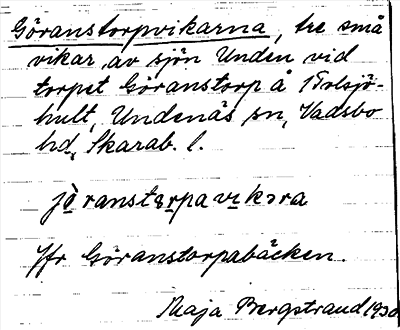 Göranstorpvikarna, tre små
vikar av sjön Unden vid
torpet Göranstorp å
hult, Undenäs sn, Vadsbo
hd, Skarab. l.
Jfr Göranstorpabäcken.
Maja Bergstrand 1930